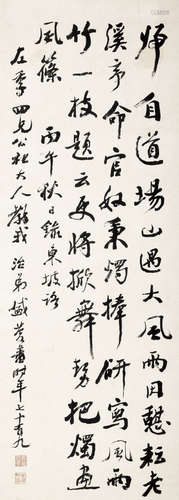 師自道場山遇大風雨因憩耘老
溪亭命官奴秉燭捧研寫風雨
竹一枝題云更將掀舞勢把燭畫
風篠 丙午秋日錄東坡語
左季四兄公祖大人教我 治弟 書時年七十有九